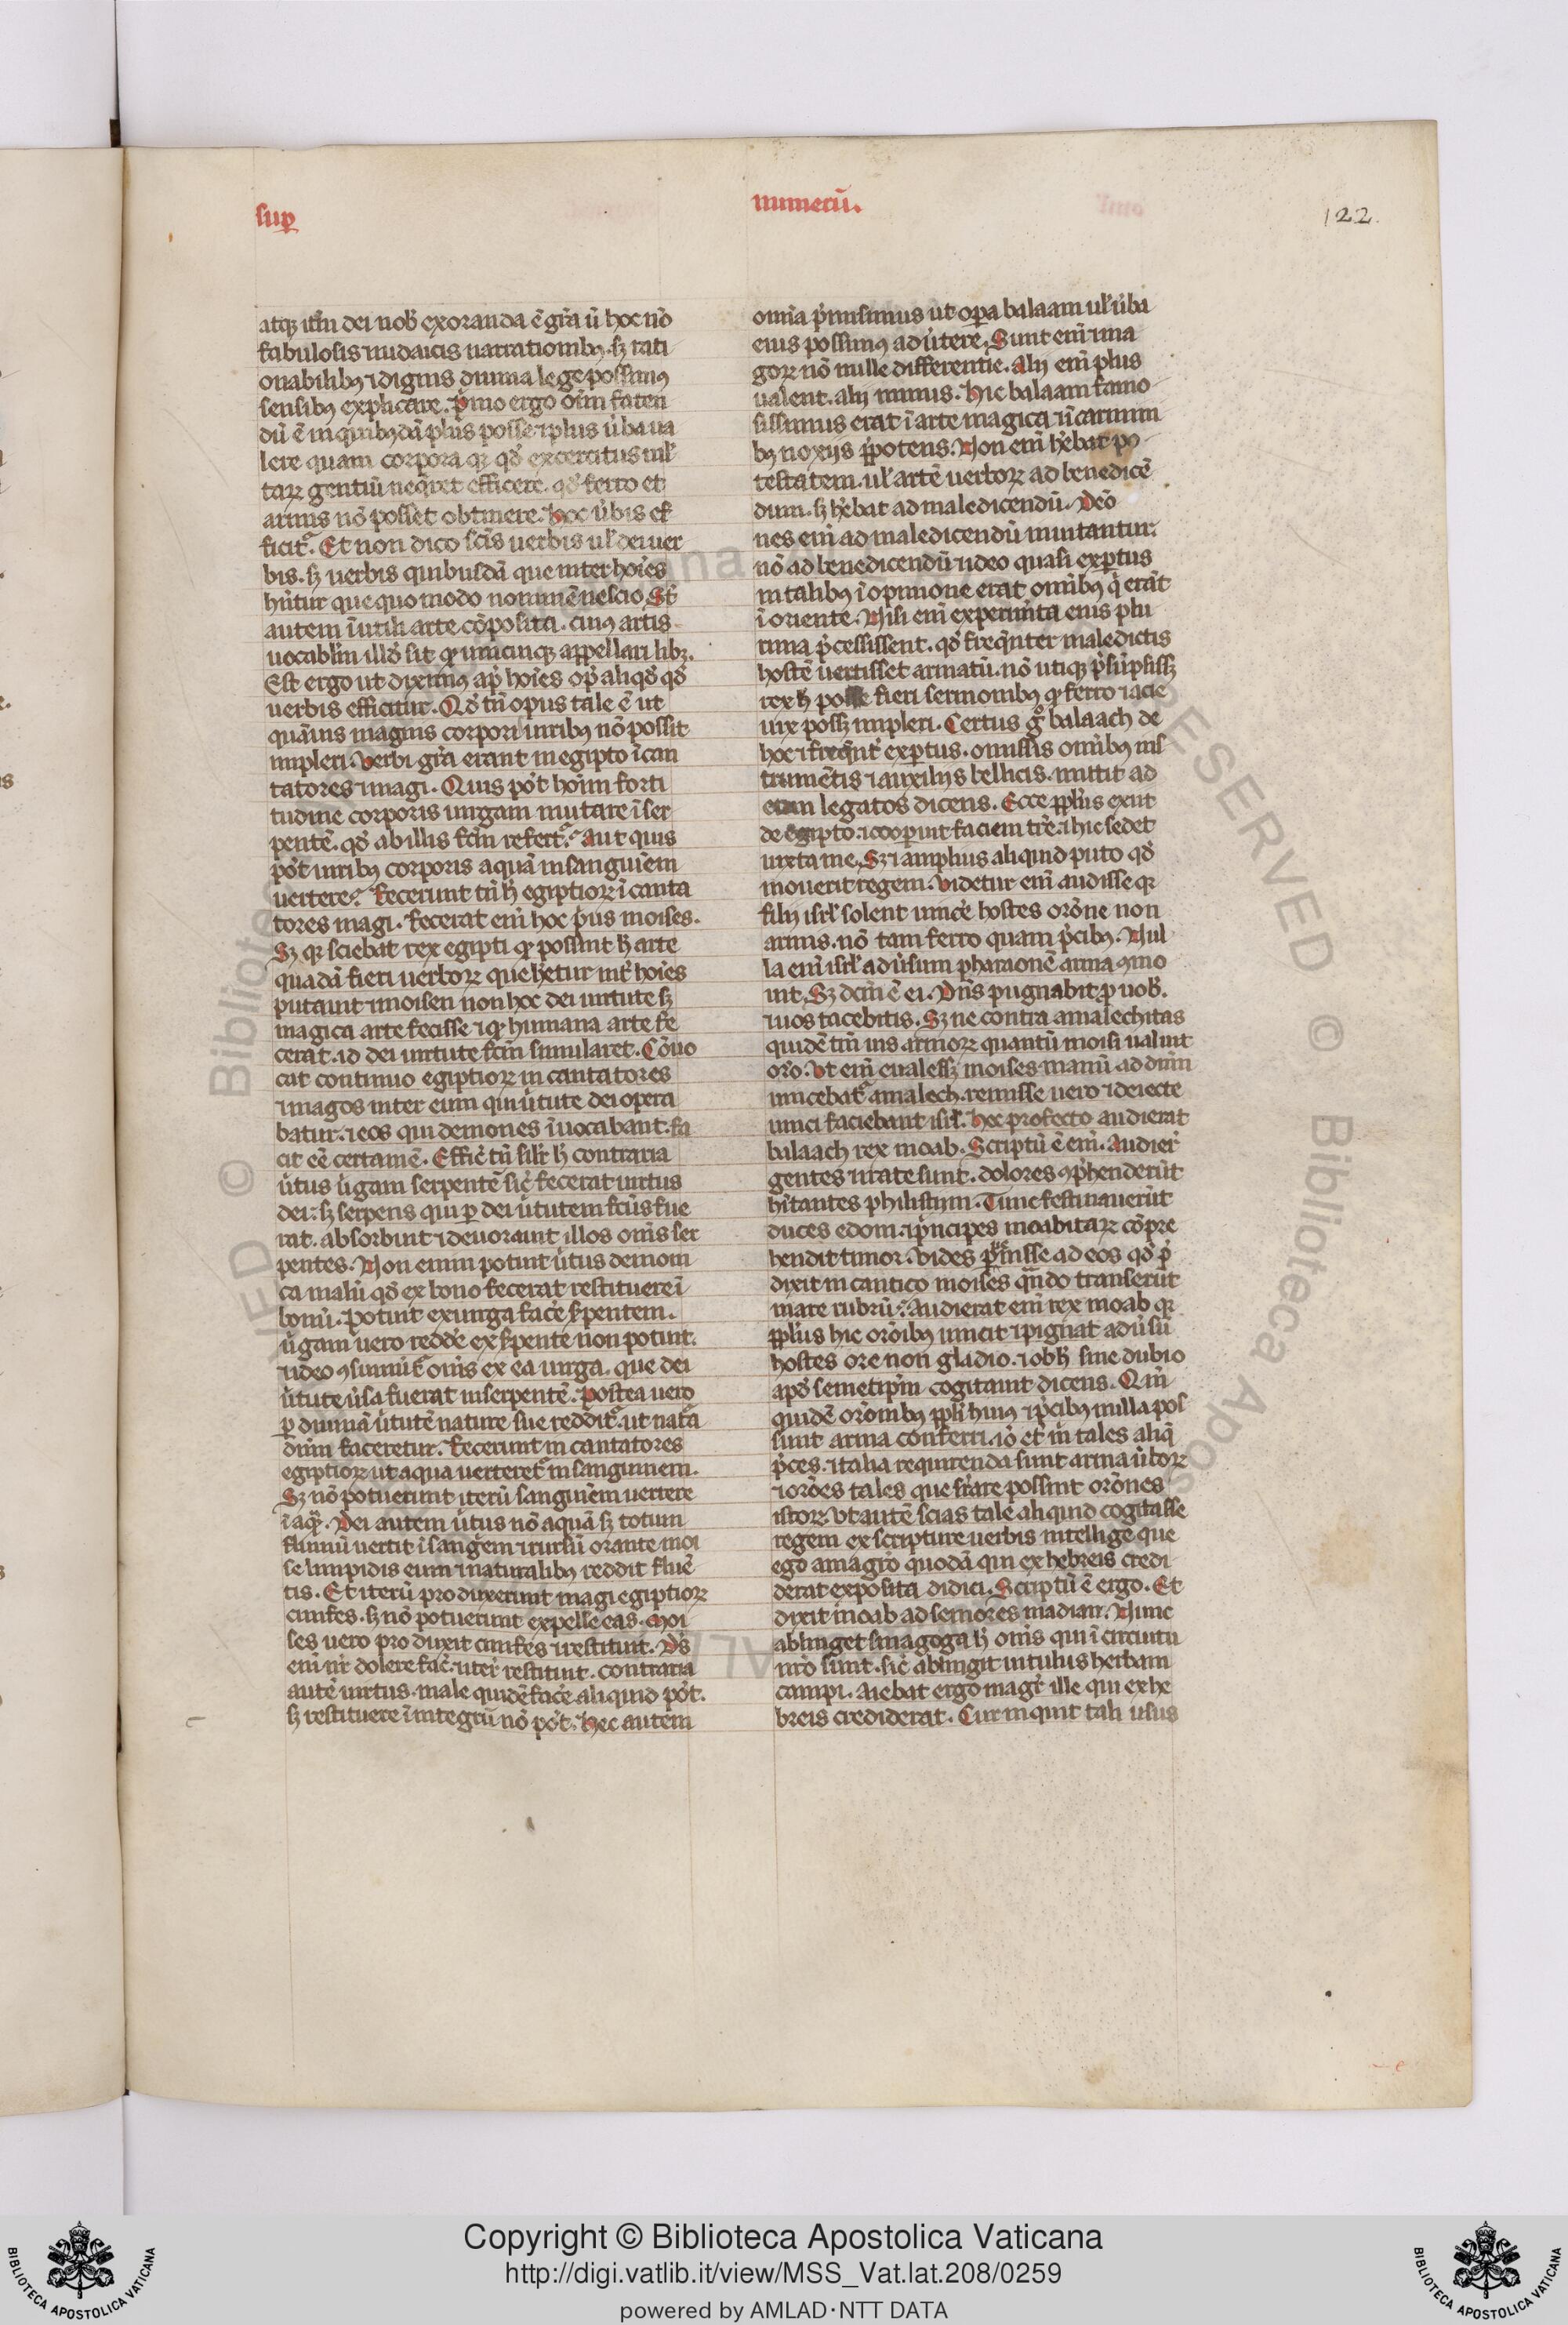 sup
numerū.
122.
atq; itm̄ dei nob̄ exoranda ē gr̄a ū hoc nō
fabulosis iudaicis narrationib; . sȝ rati
onabilibȝ ⁊ dignis diuina lege possimȝ
sensibȝ explicare. Primo ergo oīm faten
dū ē in quibȝdā plus posse ⁊ plus ūba ua
lere quam corpora qꝛ qd̓ excercitus ml̓
taꝝ gentiū neq̄ret efficere. qd̓ ferro et
armis nō posset obtinere. Hoc ūbis ef
ficit᷑. Et non dico scīs uerbis ul̓ dei uer
bis. sȝ uerbis quibusdā que inter hoīes
hn̄tur que quomodo nominē nescio. St̄
autem īutili arte cōposita. cuiȝ artis
uocabl̄m illd̓ sit qd̓ unicuiqȝ appellari libȝ.
Est ergo ut diximȝ ap̓ hoīes op̓ aliqd̓ qd̓
uerbis efficitur. Qd̓ tn̄ opus tale ē ut
quāuis magnis corpori uiribȝ nō possit
impleri. Verbi gr̄a erant in egipto īcan
tatores ⁊ magi. Quis pōt hoīm forti
tudine corporis uirgam mutare ī ser
pentē. qd̓ ab illis fc̄m refert᷑. Aut quis
pōt uiribȝ corporis aquā in sanguīem
uertere? Fecerunt tn̄ h̄ egiptioꝝ ī canta
tores magi. fecerat eni̅ hoc prius moises.
Sȝ qꝛ sciebat rex egipti qd̓ possint h̄ arte
quadā fieri uerboꝝ que h̄etur int̄ hoīes
putauit ⁊ moisen non hoc dei uirtute sȝ
magica arte fecisse ⁊ qd̓ humana arte fe
cerat. id dei uirtute fc̄m simularet. Cōuo
cat continuo egiptioꝝ in cantatores
⁊ magos inter eum qui ūtute dei opera
batur. ⁊ eos qui demones īuocabant. fa
cit eē certamē. Effic̄ tn̄ silr̄ h̄ contraria
ūtus ūgam serpentē sic̄ fecerat uirtus
dei: sȝ serpens qui p dei ūtutem fc̄us fue
rat. absorbuit ⁊ deuorauit illos om̄s ser
pentes. Non enim potuit ūtus demoni
ca malū qd̓ ex bono fecerat restituere ī
bonū. Potuit ex uirga facē s̄pentem.
ūgam uero reddē ex s̄pente non potuit.
⁊ ideo ꝯsumūt᷑ om̄s ex ea uirga. que dei
ūtute ūsa fuerat in serpentē. Postea uero
p diuinā ūtutē nature sue reddit᷑. ut nat̄a
dn̄m faceretur. Fecerunt in cantatores
egiptioꝝ ut aqua uerteret᷑ in sanguinem.
Sȝ nō potuerunt iterū sanguīem uertere
ī aqȝ. Dei autem ūtus nō aquā sȝ totum
flumū uertit ī sangem ⁊ rursū orante moi
se limpidis eum ⁊ naturalibȝ reddit fluē
tis. Et iterū produxerunt magi egiptioꝝ
cinifes. sȝ nō potuerunt expellē eas. Moi
ses uero produxit cinifes ⁊ restituit. Ds̄
eni̅ nr̄ dolere fac̄. ⁊ iter̄ restituit. contraria
autē uirtus. male quidē facē aliquid pōt.
sȝ restituere ī integrū nō pōt. Hec autem
omīa p̄misimus ut opa balaam ul̓ ūba
eius possimȝ aduertere. Sunt eni̅ ma
goꝝ nō nulle differentie. Alij eni̅ plus
ualent. alij minus. Hic balaam famo
sissimus erat ī arte magica ⁊ ī carmini
bȝ noxijs p̄potens. Non eni̅ h̄ebat po
testatem. ul̓ artē uerboꝝ ad benedicē
dum. sȝ h̄ebat ad maledicendū. Demo
nes eni̅ ad maledicendū inuitantur.
nō ad benedicendū ⁊ ideo quasi exptus
in talibȝ ī opinione erat omībȝ q̄ erāt
ī oriente. Nisi eni̅ experim̄ta eius plu
rima p̄cessissent. qd̓ freq̄nter maledictis
hostē uertisset armatū. nō utiqȝ p̄sūpsissȝ
rex h̄ posse fieri sermonibȝ qd̓ ferro ⁊ acie
uix possȝ impleri. Certus g̊ balaach de
hoc ⁊ freq̄nt̄ exptus. omissis omībȝ ins
trumētis ⁊ auxilijs bellicis. mittit ad
eum legatos dicens. Ecce ppl̄us exiit
de egipto. ⁊ coopuit faciem tr̄e. ⁊ hic sedet
iuxta me. Sȝ ⁊ amplius aliquid puto qd̓
mouerit regem. Videtur eni̅ audisse qꝛ
filij isrl̓ solent uincē hostes orōne non
armis. nō tam ferro quam p̄cibȝ. Nul
la eni̅ isrl̓ aduersum pharaonē arma ꝯmo
uit. Sȝ dc̄m ē ei. Dn̄s pugnabit p uob̄.
⁊ uos tacebitis. Sȝ ne contra amalechitas
quidē tm̄ uis armoꝝ quantū moisi ualuit
orō. Vt eni̅ eualessȝ moises manū ad dn̄m
uincebat᷑ amalech. remisse uero ⁊ deiecte
uinci faciebant isrl̓. Hec profecto audierat
balaach rex moab. Scriptū ē eni̅. Audier̄
gentes ⁊ irate sunt. dolores ꝯp̄henderūt
hītantes philistijm. Tunc festinauerūt
duces edom. ⁊ p̄ncipes moabitaꝝ cōpre
hendit timor. Vides puenisse ad eos qd̓ p̄
dixit in cantico moises qn̄do transierūt
mare rubrū? Audierat eni̅ rex moab qꝛ
ppl̄us hic orōibȝ uincit ⁊ pugnat adūsū
hostes ore non gladio. ⁊ ob h̄ sine dubio
apd̓ semetip̄m cogitauit dicens. Qm̄
quidē orōnibȝ ppl̄i huiȝ ⁊ p̄cibȝ nulla pos
sunt arma conferri. iō et m̄ tales aliq̄
p̄ces. ⁊ talia requirenda sunt arma ūboꝝ
⁊ orōes tales que supare possint orōnes
istoꝝ. Vt autē scias tale aliquid cogitasse
regem ex scripture uerbis intellige que
ego a magr̄o quodā qui ex hebreis credi
derat exposita didici. Scriptū ē ergo. Et
dixit moab ad seniores madian. Nunc
ablinget sinagoga h̄ om̄s qui ī circuitu
nr̄o sunt. sic̄ ablingit uitulus herbam
campi. Aiebat ergo magr̄ ille qui ex he
breis crediderat. Cur inquit tali usus
Copyright © Biblioteca Apostolica Vaticana
http://digi.vatlib.it/view/MSS_Vat.lat.208/0259
powered by AMLAD·NTT DATA
BIBLIOTECA APOSTOLICA VATICANA
BIBLIOTECA APOSTOLICA VATICANA